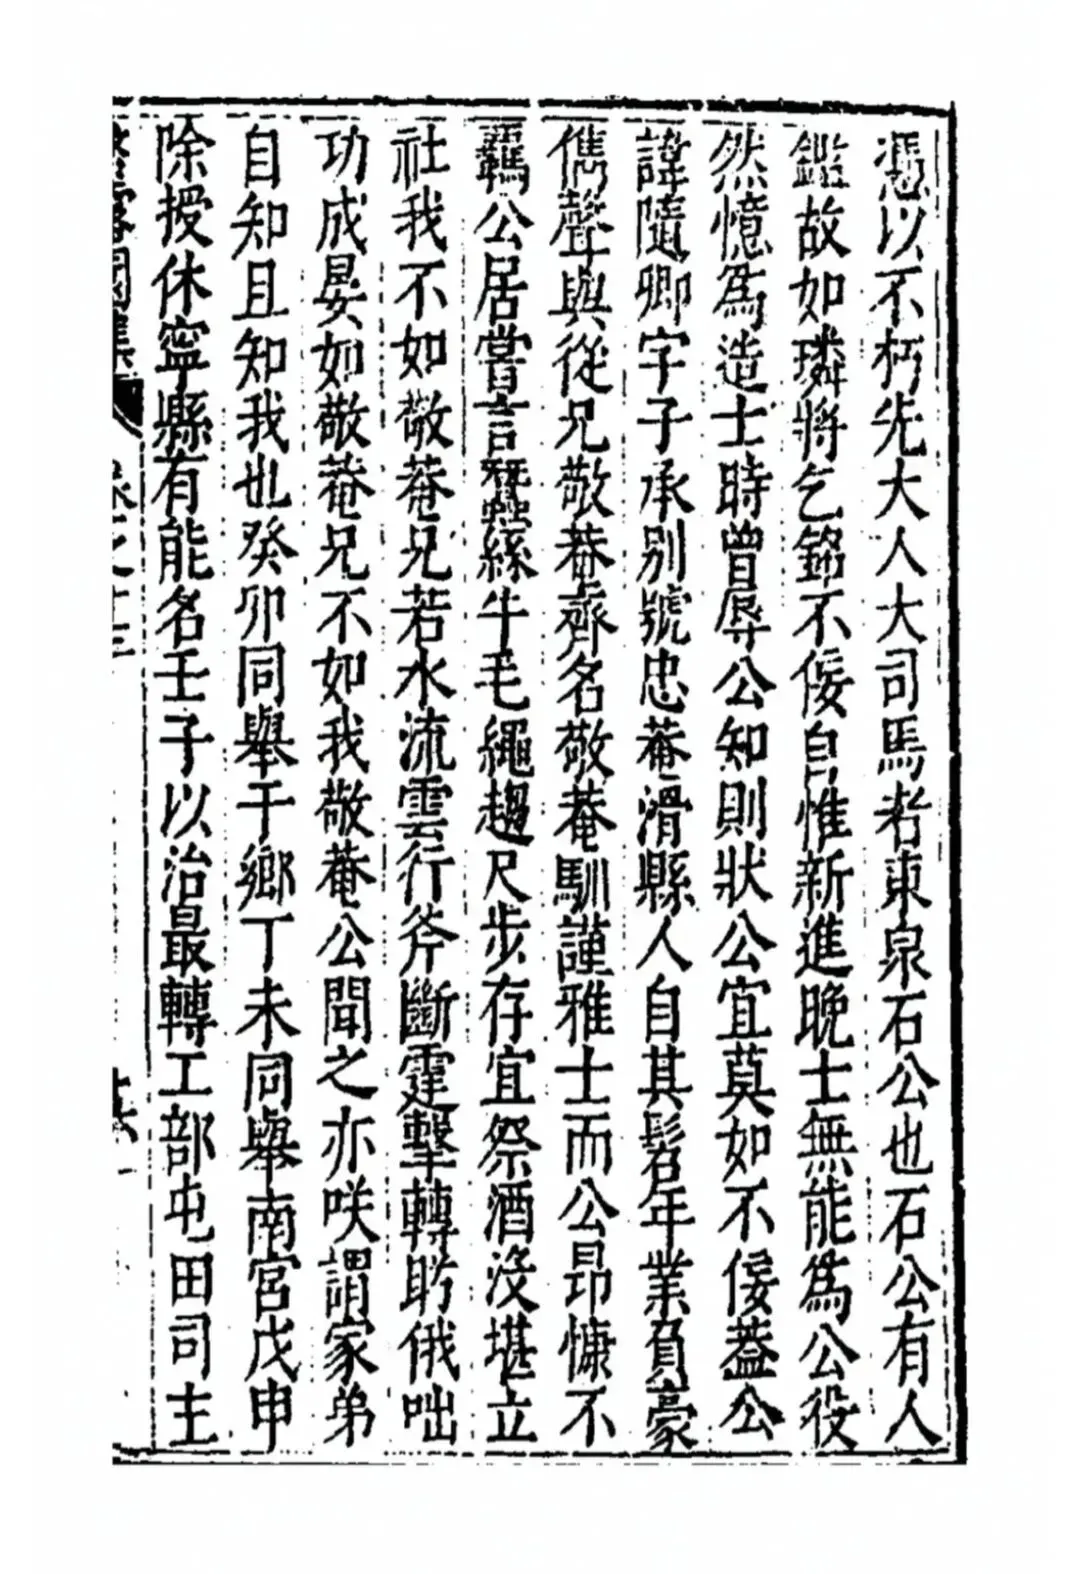 憑以不朽先大人大司馬者東泉石公也石公有人
鑑故如璘將乞銘不佞自惟新進晚士無能為公役
然憶為造士時曾辱公知則狀公宜莫如不佞葢公
諱隨卿字子承别號忠菴滑縣人自其髫年業負豪
儁聲與從兄敬菴齊名敬菴馴謹雅士而公昻慷不
羈公居嘗言蠶絲牛毛繩趨尺步存宜祭酒没堪立
社我不如敬菴兄若水流雲行斧斷霆擊轉盻俄咄
功成晏如敬菴兄不如我敬菴公聞之亦咲謂家弟
自知且知我也癸卯同舉于鄉丁未同舉南宮戊申
除授休寧縣有能名壬子以治最轉工部屯田司主